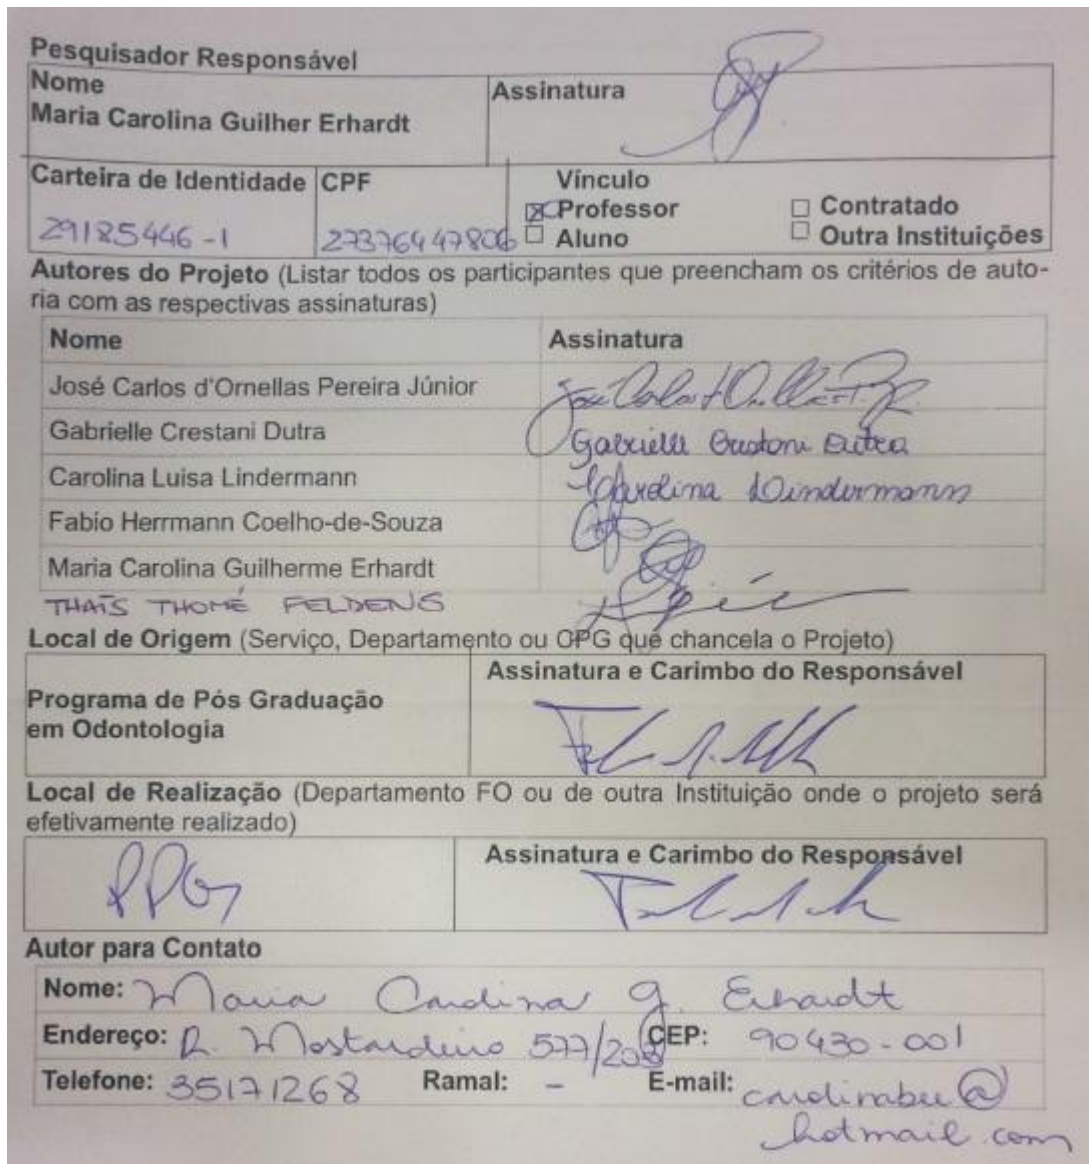 Pesquisador Responsável
Nome
Assinatura
Maria Carolina Guilher Erhardt
Carteira de Identidade
CPF
Vínculo
29185446-1
27376447806
Professor
Contratado
Aluno
Outra Instituições
Autores do Projeto (Listar todos os participantes que preencham os critérios de auto-
ria com as respectivas assinaturas)
Nome
Assinatura
José Carlos d'Ornellas Pereira Júnior
Gabrielle Crestani Dutra
Gabrielle Crestani Dutra
Carolina Luisa Lindermann
Carolina Lindermann
Fabio Herrmann Coelho-de-Souza
Maria Carolina Guilherme Erhardt
THAÍS THOMÉ FELDENS
Local de Origem (Serviço, Departamento ou CPG que chancela o Projeto)
Assinatura e Carimbo do Responsável
Programa de Pós Graduação
em Odontologia
Local de Realização (Departamento FO ou de outra Instituição onde o projeto será
efetivamente realizado)
Assinatura e Carimbo do Responsável
PPG
Autor para Contato
Nome: Maria Carolina G. Erhardt
Endereço: R. Mostardeiro 577/
CEP: 90430-001
Telefone: 35171268 Ramal: - E-mail:
hotmail.com